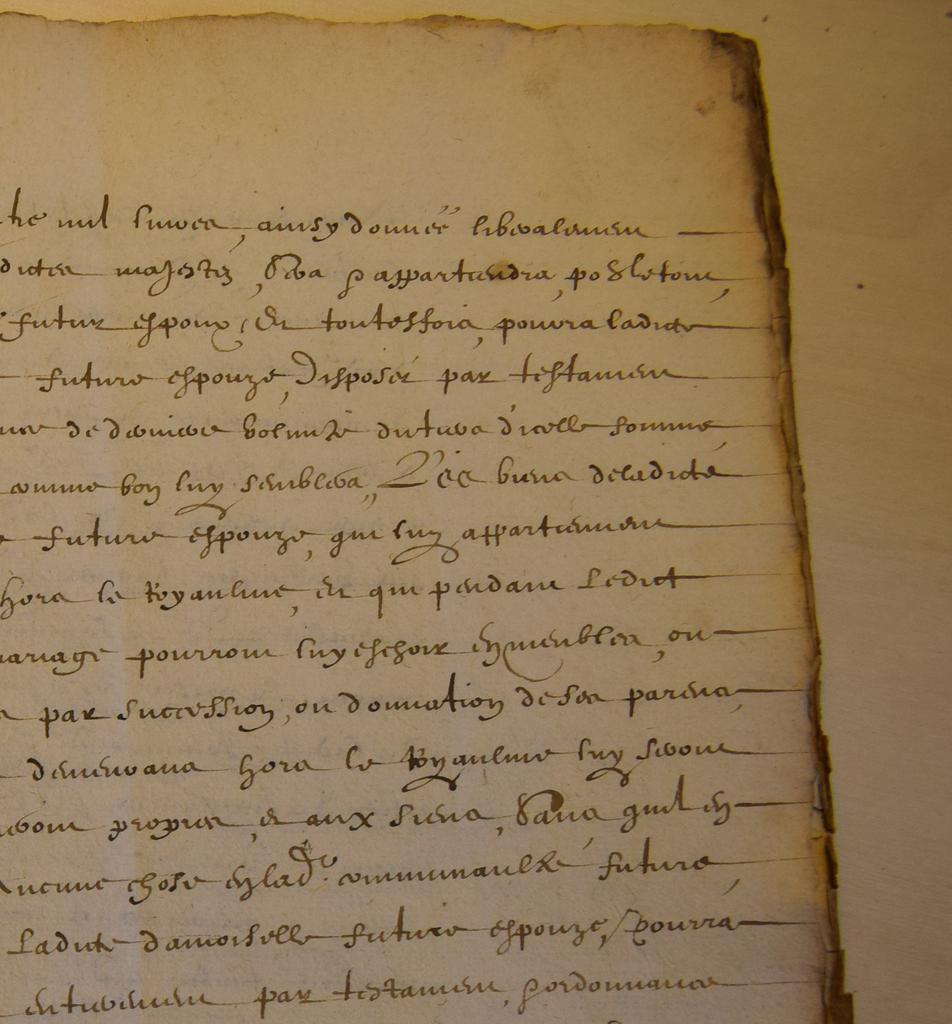 tre mil livres, ainsy donnéé liberalement
dictes majestez, Sera & appartiendra, po~ le tout,
futur espoux, Et toutesfois, pourra ladicte
future espouze, Disposer par testament
de derniere volunté du tiers d'icelle somme,
comme bon luy semblera, Lés biens deladicte
future espouze, qui luy appartiennent
hors le Royaulme, et qui pendant Ledict
mariage pourront luy eschoir en meubles, ou
par succession, ou donnation de ses parens,
demeurans hors le Royaulme luy seront
propres, et aux siens, Sans quil en
Aucune chose en lad.e communaulté future,
Ladicte damoiselle future espouze, Pourra
entierement par testament, & ordonnance